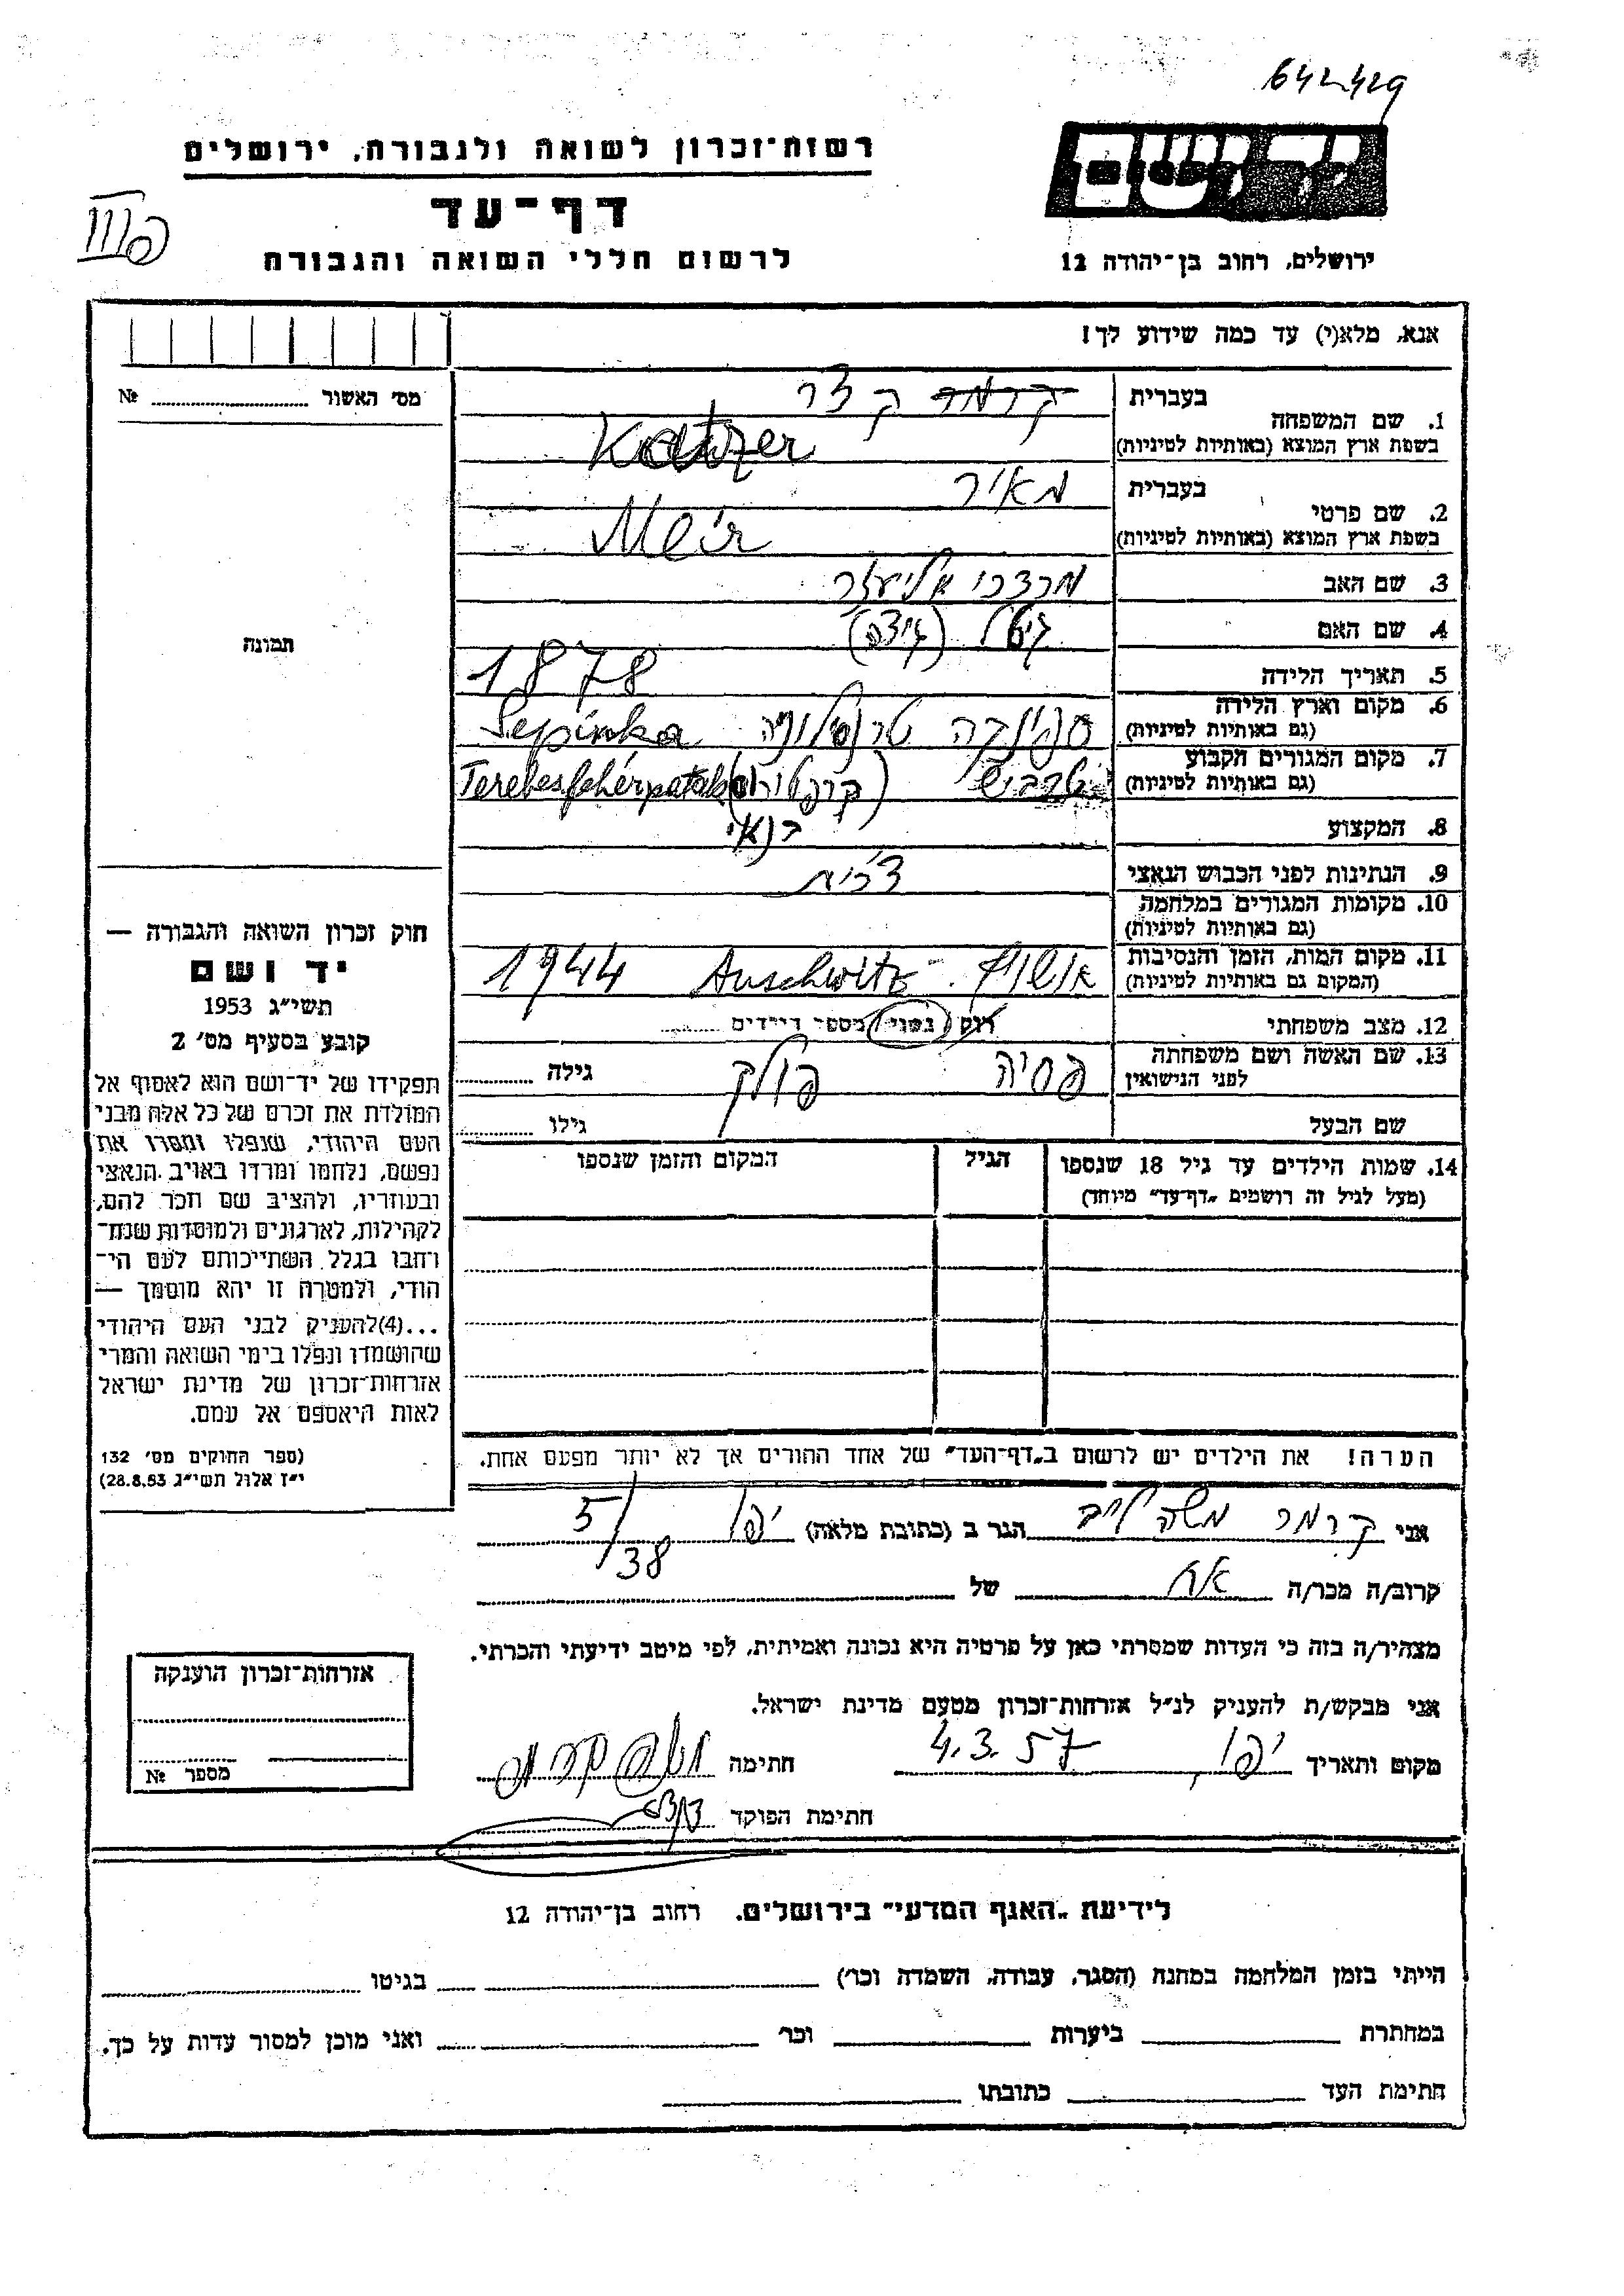 642429
רשות־זכרון לשואה ולגבורה, ירושלים
יד ושם
דף־עד
III
לרשום חללי השואה והגבורה
ירושלים, רחוב בן־יהודה 12
אנא, מלא(י) עד כמה שידוע לך!
מס׳ האשור № 
בעברית קרמר קצר
1. שם המשפחה
בשפת ארץ המוצא (באותיות לטיניות) Katzer
בעברית מאיר
2. שם פרטי
בשפת ארץ המוצא (באותיות לטיניות) Meir
3. שם האב מרדכי אליעזר
4. שם האם גיטל
תמונה
5. תאריך הלידה 1878
6. מקום וארץ הלידה
(גם באותיות לטיניות) ספינקה Sepinka
7. מקום המגורים הקבוע
(גם באותיות לטיניות) Terebesfehérpatak
8. המקצוע בנאי
9. הנתינות לפני הכבוש הנאצי צ׳כית
10. מקומות המגורים במלחמה
(גם באותיות לטיניות)
11. מקום המות, הזמן והנסיבות
(המקום גם באותיות לטיניות) אושוויץ - Auschwitz 1944
12. מצב משפחתי רווק / נשוי / מספר הילדים
13. שם האשה ושם משפחתה
לפני הנישואין פסיה פולק גילה
שם הבעל גילו
14. שמות הילדים עד גיל 18 שנספו
(מעל לגיל זה רושמים „דף־עד״ מיוחד)
הגיל
המקום והזמן שנספו
הערה! את הילדים יש לרשום ב„דף־העד״ של אחד ההורים אך לא יותר מפעם אחת.
חוק זכרון השואה והגבורה —
יד ושם
תשי״ג 1953
קובע בסעיף מס׳ 2
תפקידו של יד־ושם הוא לאסוף אל
המולדת את זכרם של כל אלה מבני
העם היהודי, שנפלו ומסרו את
נפשם, נלחמו ומרדו באויב הנאצי
ובעוזריו, ולהציב שם וזכר להם,
לקהילות, לארגונים ולמוסדות שנח־
רבו בגלל השתייכותם לעם הי־
הודי, ולמטרה זו יהא מוסמך —
...(4)להעניק לבני העם היהודי
שהושמדו ונפלו בימי השואה והמרי
אזרחות־זכרון של מדינת ישראל
לאות היאספם אל עמם.
(ספר החוקים מס׳ 132
י״ז אלול תשי״ג 28.8.53)
אני קרמר משה לייב הגר ב (כתובת מלאה) יפו 5/38
קרוב/ה מכר/ה אח של
מצהיר/ה בזה כי העדות שמסרתי כאן על פרטיה היא נכונה ואמיתית, לפי מיטב ידיעתי והכרתי.
אני מבקש/ת להעניק לנ״ל אזרחות־זכרון מטעם מדינת ישראל.
מקום ותאריך יפו, 4.3.57 חתימה
חתימת הפוקד
אזרחות־זכרון הוענקה
מספר №
לידיעת „האגף המדעי״ בירושלים, רחוב בן־יהודה 12
הייתי בזמן המלחמה במחנה (הסגר, עבודה, השמדה וכו׳) בגיטו
במחתרת ביערות וכו׳ ואני מוכן למסור עדות על כך.
חתימת העד כתובתו